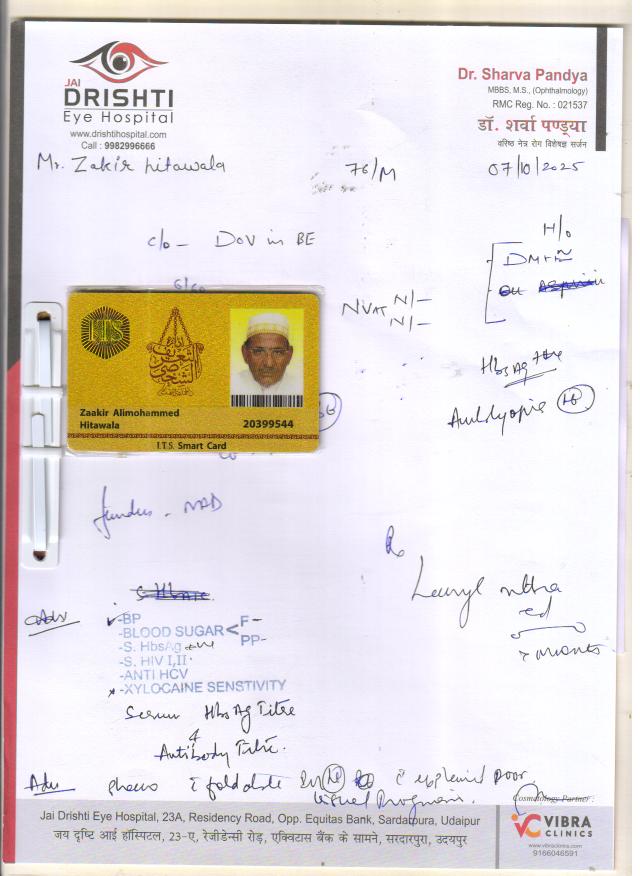 JAI
DRISHTI
Eye Hospital
www.drishtihospital.com
Call : 9982996666
Dr. Sharva Pandya
MBBS, M.S., (Ophthalmology)
RMC Reg. No. : 021537
डॉ. शर्वा पण्ड्या
वरिष्ठ नेत्र रोग विशेषज्ञ सर्जन
Mr. Zakir hitawala 76/M 07/10/2025
c/o - DOV in BE
H/o
DM HTN
6/60
NVAT N/-
N/-
HbsAg +ve
Amblyopia
ITS
Zaakir Alimohammed
Hitawala
20399544
I.T.S. Smart Card
fundus - NAD
Rx
ultra
ed
Adv
-BP
-BLOOD SUGAR < F -
PP-
-S. HbsAg +ve
-S. HIV I,II
-ANTI HCV
-XYLOCAINE SENSTIVITY
Serum HbsAg Titre
Antibody Titre.
Adv phaco foldable explained poor
visual Prognosis.
Cosmetology Partner :
VIBRA
CLINICS
www.vibraclinics.com
9166046591
Jai Drishti Eye Hospital, 23A, Residency Road, Opp. Equitas Bank, Sardarpura, Udaipur
जय दृष्टि आई हॉस्पिटल, 23-ए, रेजीडेन्सी रोड़, एक्विटास बैंक के सामने, सरदारपुरा, उदयपुर